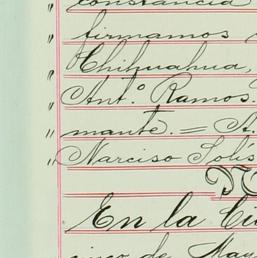 constancia
" firmamos
" Chihuahua,
" Ant.º Ramos.
" mante. = A.
" Narciso Solís
En la Ciu
cinco de May